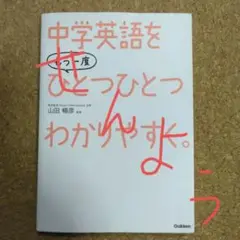 中学英語を
もう一度
ひとつひとつ
わかりやすく。
山田暢彦
Gakken
せんよう